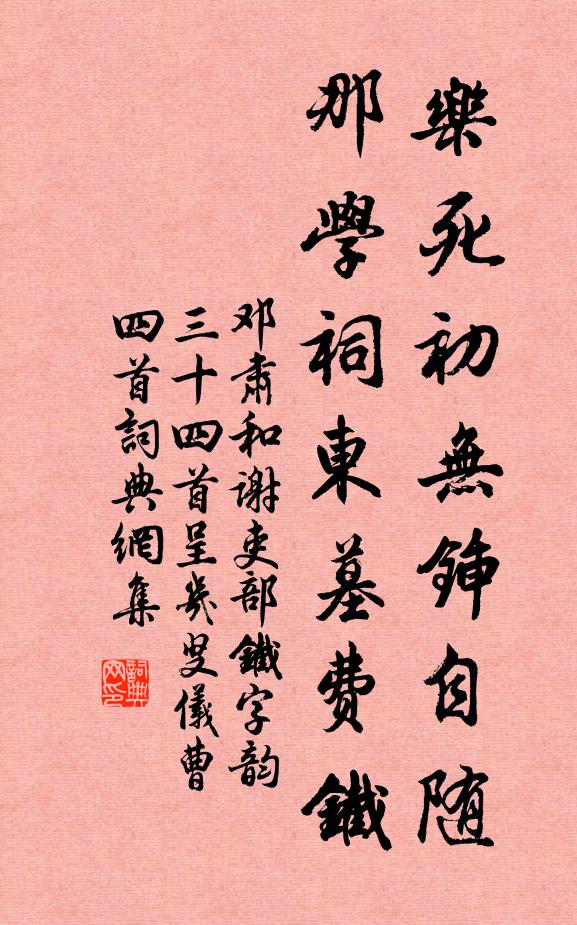 樂死初無鍤自随
那學祠東墓費鐵
邓肅和謝吏部鐵字韵
三十四首呈幾叟儀曹
四首詞典網集
詞典网印